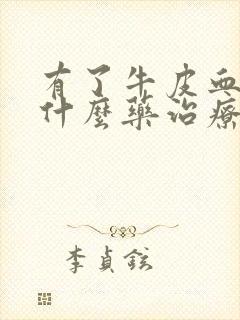 有了牛皮血
什麼藥治療
李貞鉉